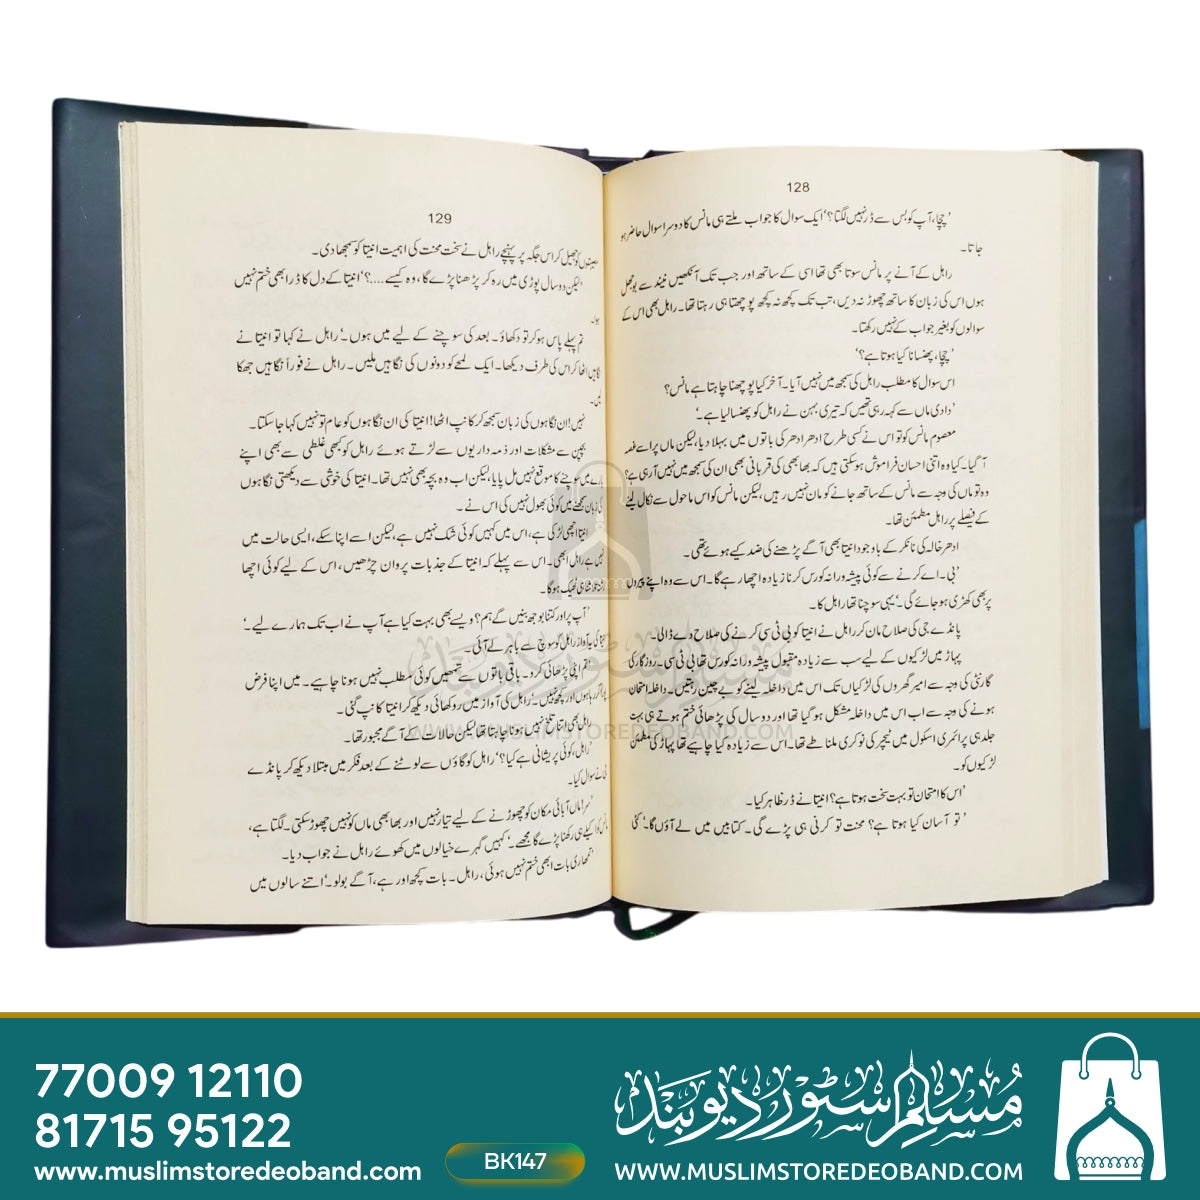 128
'چچا، آپ کو بس سے ڈر نہیں لگتا؟' ایک سوال کا جواب ملتے ہی مانس کا دوسرا سوال حاضر ہو
جاتا۔
راہل کے آنے پر مانس سوتا بھی تھا اسی کے ساتھ اور جب تک آنکھیں نیند سے بوجھل
ہوں اس کی زبان کا ساتھ چھوڑ نہ دیں، تب تک کچھ نہ کچھ پوچھتا ہی رہتا تھا۔ راہل بھی اس کے
سوالوں کو بغیر جواب کے نہیں رکھتا۔
'چچا، پھنسانا کیا ہوتا ہے؟'
اس سوال کا مطلب راہل کی سمجھ میں نہیں آیا۔ آخر کیا پوچھنا چاہتا ہے مانس؟
'دادی ماں سے کہہ رہی تھیں کہ تیری بہن نے راہل کو پھنسا لیا ہے۔'
معصوم مانس کو تو اس نے کسی طرح ادھر ادھر کی باتوں میں بہلا دیا، لیکن ماں پر اسے غصہ
آ گیا۔ کیا وہ اتنی احسان فراموش ہو سکتی ہیں کہ بھابھی کی قربانی بھی ان کی سمجھ میں نہیں آ رہی ہے؟
وہ تو ماں کی وجہ سے مانس کے ساتھ جانے کو مان نہیں رہیں، لیکن مانس کو اس ماحول سے نکال لینے
کے فیصلے پر راہل مطمئن تھا۔
ادھر خالہ کی نا نکر کے باوجود انیتا بھی آگے پڑھنے کی ضد کیے ہوئے تھی۔
'بی۔ اے کرنے سے کوئی پیشہ ورانہ کورس کرنا زیادہ اچھا رہے گا۔ اس سے وہ اپنے پیروں
پر بھی کھڑی ہو جائے گی۔' یہی سوچنا تھا راہل کا۔
پانڈے جی کی صلاح مان کر راہل نے انیتا کو بی ٹی سی کرنے کی صلاح دے ڈالی۔
پہاڑ میں لڑکیوں کے لیے سب سے زیادہ مقبول پیشہ ورانہ کورس تھا بی ٹی سی۔ روزگار کی
گارنٹی کی وجہ سے امیر گھروں کی لڑکیاں تک اس میں داخلہ لینے کو بے چین رہتیں۔ داخلہ امتحان
ہونے کی وجہ سے اب اس میں داخلہ مشکل ہو گیا تھا اور دو سال کی پڑھائی ختم ہوتے ہی بہت
جلد ہی پرائمری اسکول میں ٹیچر کی نوکری ملنا طے تھا۔ اس سے زیادہ کیا چاہیے تھا پہاڑ کی مطمئن
لڑکیوں کو۔
'اس کا امتحان تو بہت سخت ہوتا ہے؟' انیتا نے ڈر ظاہر کیا۔
'تو آسان کیا ہوتا ہے؟ محنت تو کرنی ہی پڑے گی۔ کتابیں میں لے آؤں گا۔' کئی
129
کو جھیل کر اس جگہ پر پہنچے راہل نے سخت محنت کی اہمیت انیتا کو سمجھا دی۔
'لیکن دو سال پوڑی میں رہ کر پڑھنا پڑے گا، وہ کیسے....؟' انیتا کے دل کا ڈر ابھی ختم نہیں
ہوا۔
'تم پہلے پاس ہو کر تو دکھاؤ۔ بعد کی سوچنے کے لیے میں ہوں۔' راہل نے کہا تو انیتا نے
نگاہیں اٹھا کر اس کی طرف دیکھا۔ ایک لمحے کو دونوں کی نگاہیں ملیں۔ راہل نے فوراً نگاہیں جھکا
لیں۔
نہیں! ان نگاہوں کی زبان سمجھ کر کانپ اٹھا! انیتا کی ان نگاہوں کو عام تو نہیں کہا جا سکتا۔
بچپن سے مشکلات اور ذمہ داریوں سے لڑتے ہوئے راہل کو کبھی غلطی سے بھی اپنے
بارے میں سوچنے کا موقع نہیں مل پایا، لیکن اب وہ بچہ بھی نہیں تھا۔ انیتا کی خوشی سے دیکھتی نگاہوں
کی زبان سمجھنے میں کوئی بھول نہیں کی اس نے۔
انیتا اچھی لڑکی ہے، اس میں کہیں کوئی شک نہیں ہے، لیکن اسے اپنا سکے، ایسی حالت میں
نہیں ہے راہل ابھی۔ اس سے پہلے کہ انیتا کے جذبات پروان چڑھیں، اس کے لیے کوئی اچھا
ٹھیک ہوگا۔
'آپ پر اور کتنا بوجھ بنیں گے ہم؟ ویسے بھی بہت کیا ہے آپ نے اب تک ہمارے لیے۔'
انیتا کی آواز راہل کو سوچ سے باہر لے آئی۔
'تم اپنی پڑھائی کرو۔ باقی باتوں سے تمھیں کوئی مطلب نہیں ہونا چاہیے۔ میں اپنا فرض
رہا ہوں اور کچھ نہیں۔' راہل کی آواز میں روکھائی دیکھ کر انیتا کانپ گئی۔
راہل بھی اتنا تلخ نہیں ہونا چاہتا تھا لیکن حالات کے آگے مجبور تھا۔
'راہل، کوئی پریشانی ہے کیا؟' راہل کو گاؤں سے لوٹنے کے بعد فکر میں مبتلا دیکھ کر پانڈے
جی نے سوال کیا۔
'سر! ماں آبائی مکان کو چھوڑنے کے لیے تیار نہیں اور بھابھی ماں کو نہیں چھوڑ سکتی۔ لگتا ہے،
مانس کو اکیلے ہی رکھنا پڑے گا مجھے۔' کہیں گہرے خیالوں میں کھوئے راہل نے جواب دیا۔
'تمھاری بات ابھی ختم نہیں ہوئی، راہل۔ بات کچھ اور ہے، آگے بولو۔' اتنے سالوں میں
مسلم سٹور دیوبند
WWW.MUSLIMSTOREDEOBAND.COM
77009 12110
81715 95122
www.muslimstoredeoband.com
BK147
مسلم سٹور دیوبند
WWW.MUSLIMSTOREDEOBAND.COM